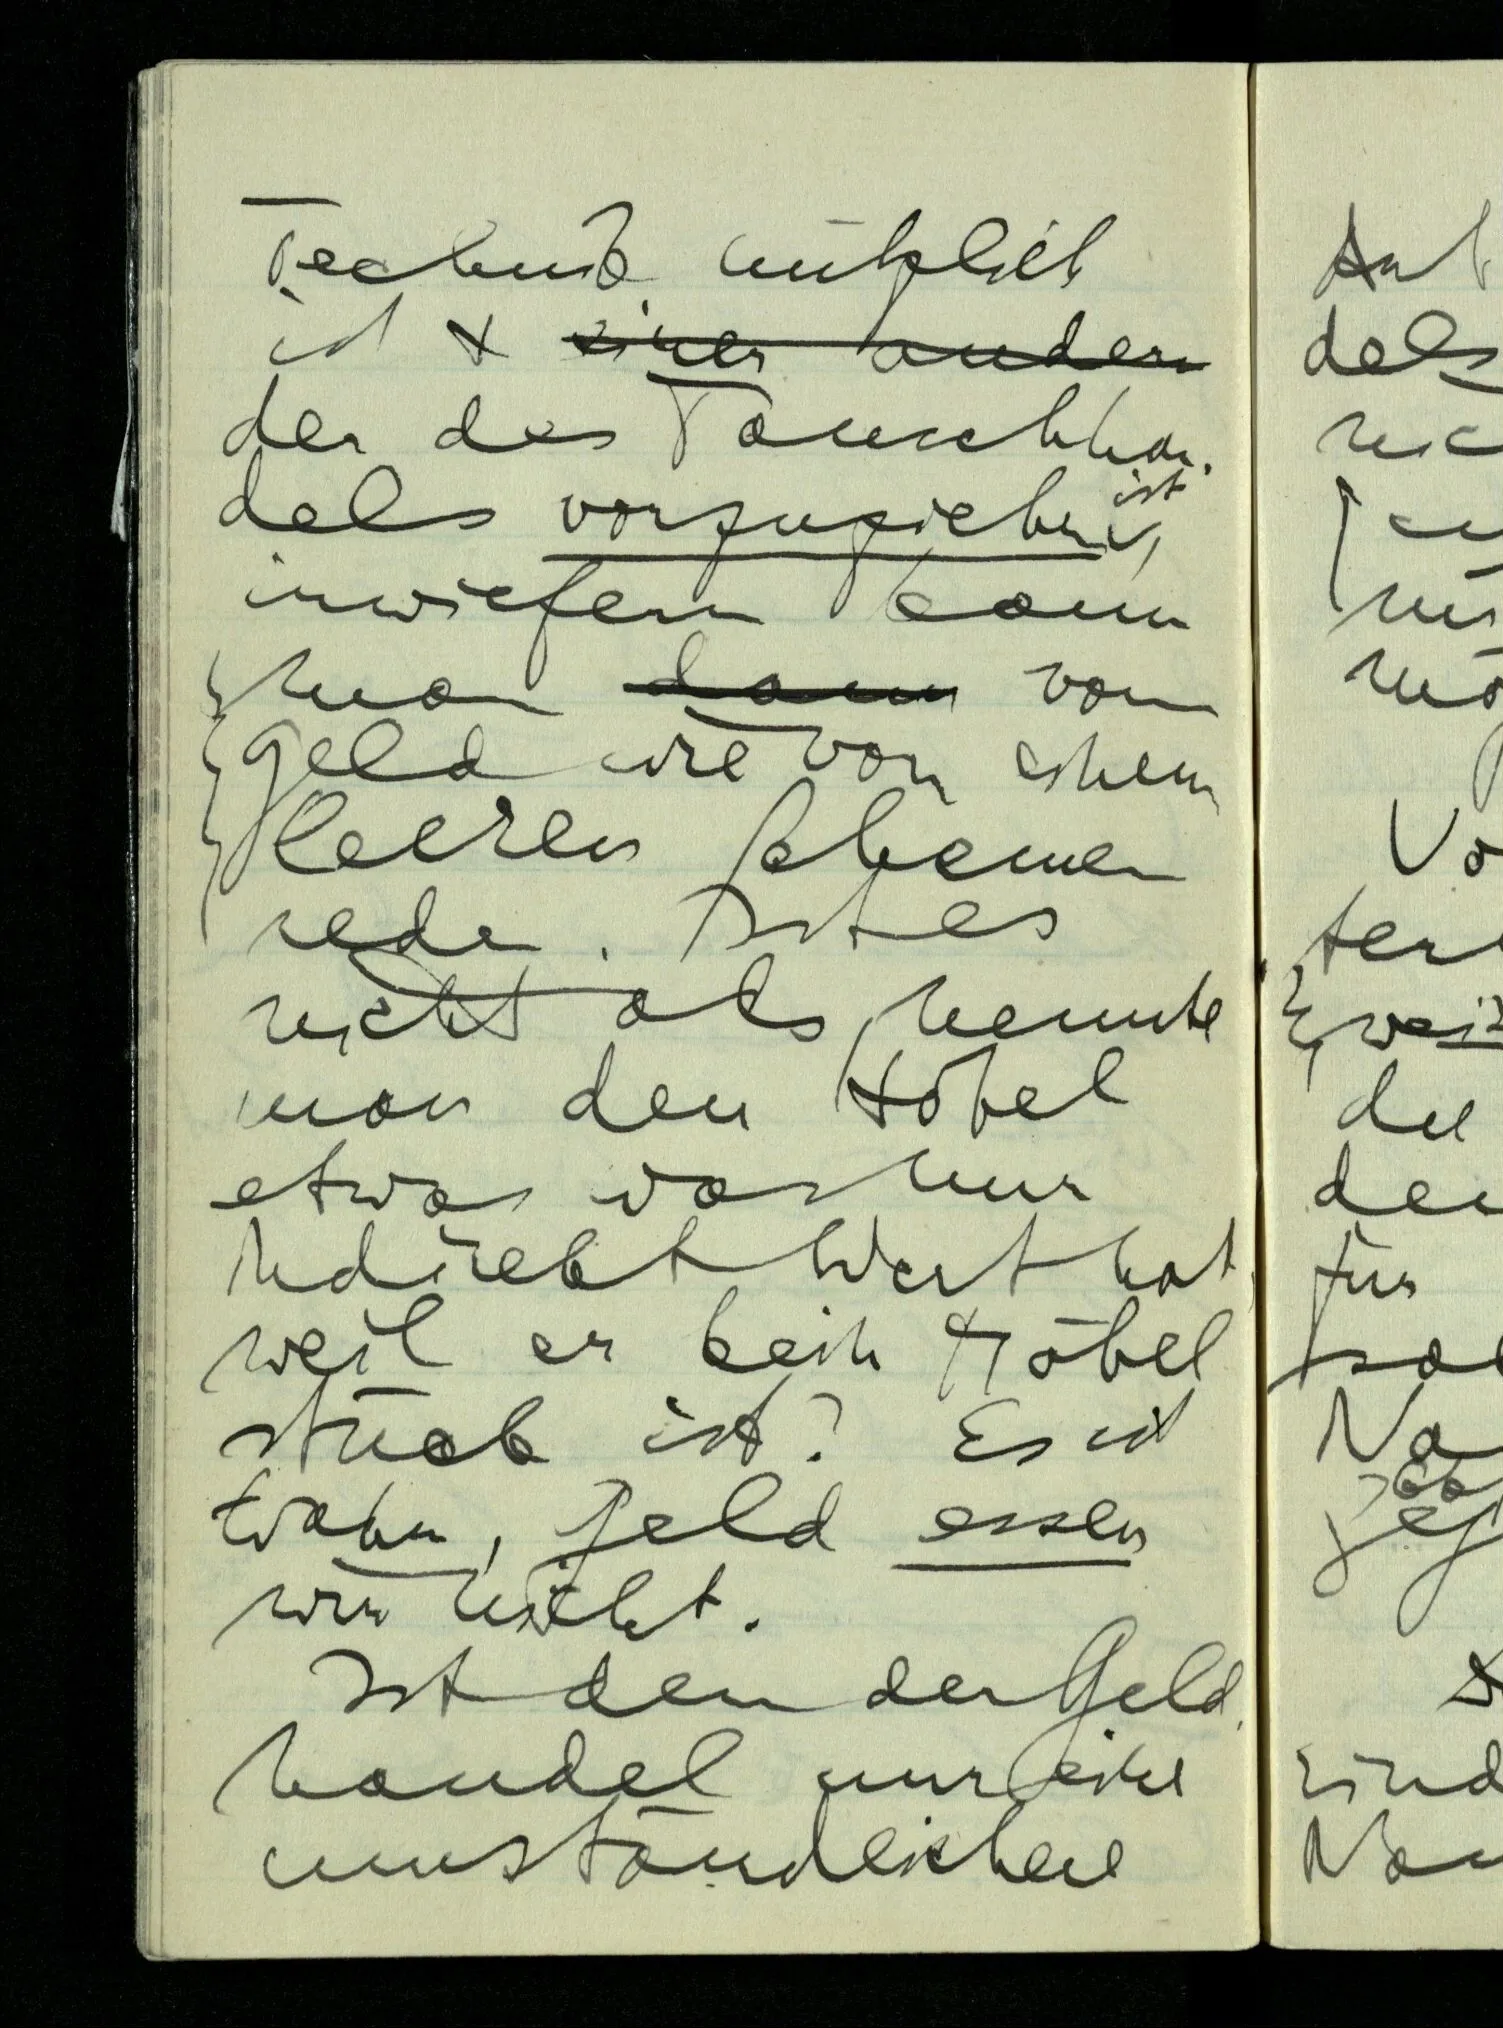 Technik nützlich
ist & einer andern
der des Tauschhan-
dels vorzuziehen ist,
inwiefern kann
man dann von
Geld wie von einem
leeren Schemen
reden. Ist es
nicht als nennte
man den Hobel
etwas was nur
indirekt Wert hat,
weil er kein Möbel
stück ist? Es ist
wahr, Geld essen
wir nicht.
Ist denn der Geld-
handel nur eine
umständlichere
dels
du
für